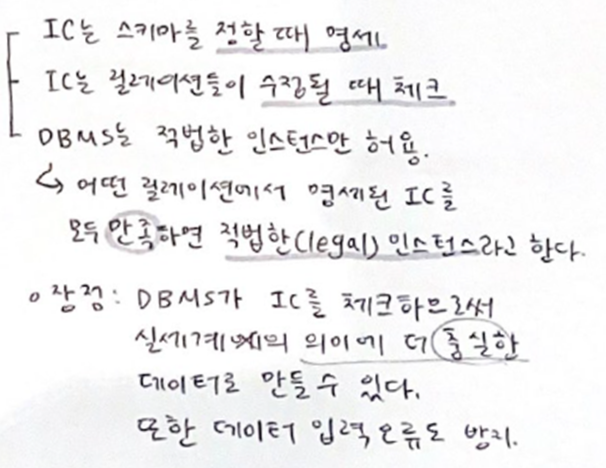 IC는 스키마를 정할 때 명세
IC는 릴레이션들이 수정될 때 체크
DBMS는 적법한 인스턴스만 허용.
↳ 어떤 릴레이션에서 명세된 IC를
모두 만족하면 적법한(legal) 인스턴스라고 한다.
o 장점: DBMS가 IC를 체크하므로써
실세계의 의미에 더 충실한
데이터로 만들 수 있다.
또한 데이터 입력 오류도 방지.